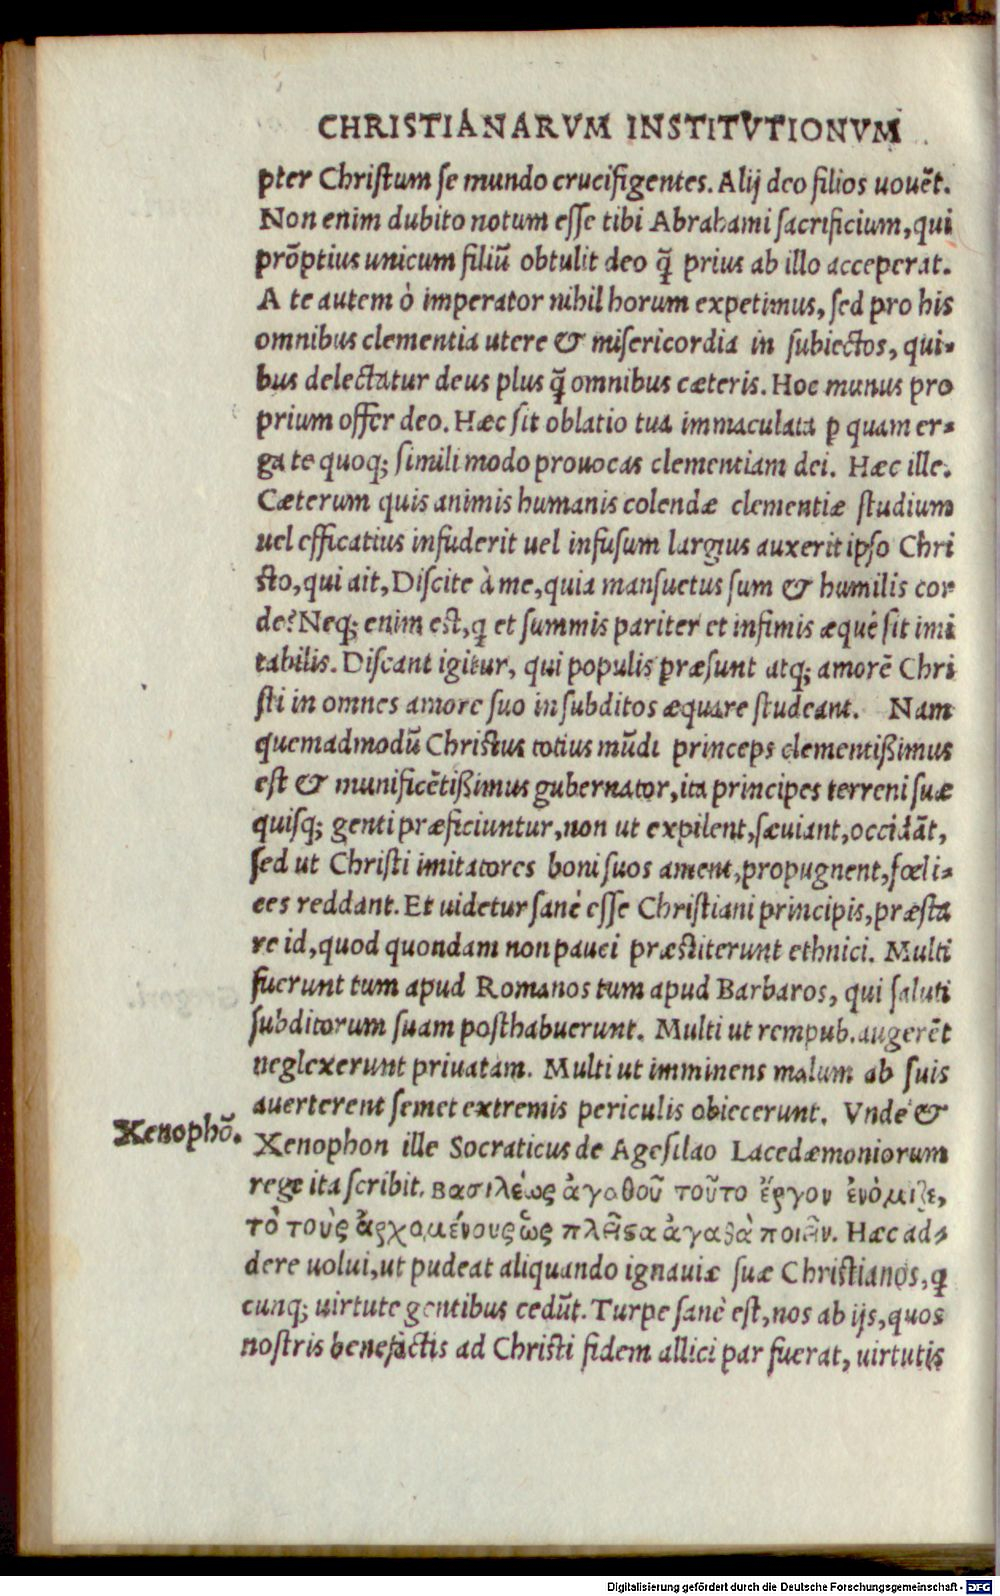 CHRISTIANARVM INSTITVTIONVM
pter Christum se mundo crucifigentes. Alij deo filios uouēt.
Non enim dubito notum esse tibi Abrahami sacrificium, qui
prōptius unicum filiū obtulit deo q̄ prius ab illo acceperat.
A te autem ò imperator nihil horum expetimus, sed pro his
omnibus clementia utere & misericordia in subiectos, qui-
bus delectatur deus plus q̄ omnibus cæteris. Hoc munus pro
prium offer deo. Hæc sit oblatio tua immaculata ꝑ quam er-
ga te quoq; simili modo prouocas clementiam dei. Hæc ille.
Cæterum quis animis humanis colendæ clementiæ studium
uel efficatius infuderit uel infusum largius auxerit ipso Chri
sto, qui ait, Discite à me, quia mansuetus sum & humilis cor
de? Neq; enim est, q̄ et summis pariter et infimis æquè sit imi
tabilis. Discant igitur, qui populis præsunt atq; amorē Chri
sti in omnes amore suo in subditos æquare studeant. Nam
quemadmodū Christus totius mūdi princeps clementißimus
est & munificētißimus gubernator, ita principes terreni suæ
quisq; genti præficiuntur, non ut expilent, sæuiant, occidāt,
sed ut Christi imitatores boni suos ament, propugnent, fœli-
ces reddant. Et uidetur sanè esse Christiani principis, præsta
re id, quod quondam non pauci præstiterunt ethnici. Multi
fuerunt tum apud Romanos tum apud Barbaros, qui saluti
subditorum suam posthabuerunt. Multi ut rempub. augerēt
neglexerunt priuatam. Multi ut imminens malum ab suis
auerterent semet extremis periculis obiecerunt. Vnde &
Xenophō.
Xenophon ille Socraticus de Agesilao Lacedæmoniorum
rege ita scribit. βασιλέως ἀγαθοῦ τοῦτο ἔργον ἐνόμιζε,
τὸ τοὺς ἀρχομένους ὡς πλεῖστα ἀγαθὰ ποιεῖν. Hæc ad-
dere uolui, ut pudeat aliquando ignauiæ suæ Christianos, q̄
cunq; uirtute gentibus cedūt. Turpe sanè est, nos ab ijs, quos
nostris benefactis ad Christi fidem allici par fuerat, uirtutis